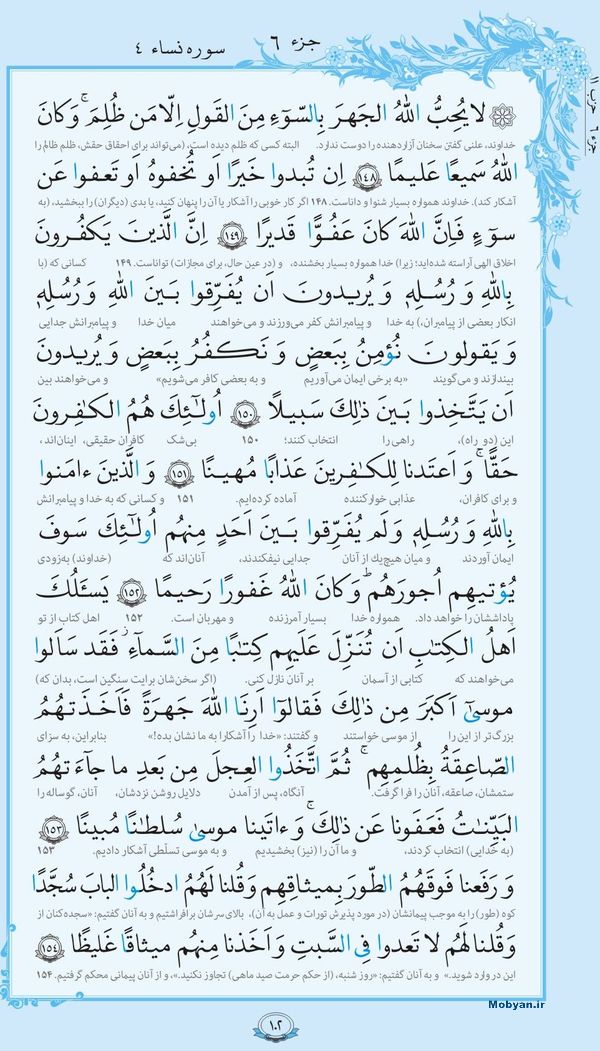 جزء ٦
سوره نساء ٤
حزب ١١
جزء ٦
لا يُحِبُّ اللهُ الجَهرَ بِالسّوءِ مِنَ القَولِ اِلّا مَن ظُلِمَ ۚ وَ كانَ
خداوند، علنی گفتن سخنان آزاردهنده را دوست ندارد. البته کسی که ظلم دیده است، (می‌تواند برای احقاق حقش، ظلم ظالم را
اللهُ سَميعًا عَليمًا ١٤٨ اِن تُبدوا خَيرًا اَو تُخفوهُ اَو تَعفوا عَن
آشکار کند). خداوند همواره بسیار شنوا و داناست. ۱۴۸ اگر کار خوبی را آشکار یا آن را پنهان کنید، یا بدی (دیگران) را ببخشید، (به
سوءٍ فَاِنَّ اللهَ كانَ عَفُوًّا قَديرًا ١٤٩ اِنَّ الَّذينَ يَكفُرونَ
اخلاق الهی آراسته شده‌اید؛ زیرا) خدا همواره بسیار بخشنده، و (در عین حال، برای مجازات) تواناست. ۱۴۹ کسانی که (با
بِاللهِ وَ رُسُلِهِ وَ يُريدونَ اَن يُفَرِّقوا بَينَ اللهِ وَ رُسُلِهِ
انکار بعضی از پیامبران،) به خدا و پیامبرانش کفر می‌ورزند و می‌خواهند میان خدا و پیامبرانش جدایی
وَ يَقولونَ نُؤمِنُ بِبَعضٍ وَ نَكفُرُ بِبَعضٍ وَ يُريدونَ
بیندازند و می‌گویند «به برخی ایمان می‌آوریم و به بعضی کافر می‌شویم» و می‌خواهند بین
اَن يَتَّخِذوا بَينَ ذٰلِكَ سَبيلًا ١٥٠ اُولٰئِكَ هُمُ الكٰفِرونَ
این (دو راه)، راهی را انتخاب کنند؛ ۱۵۰ بی‌شک کافران حقیقی، اینان‌اند،
حَقًّا ۚ وَ اَعتَدنا لِلكٰفِرينَ عَذابًا مُهينًا ١٥١ وَ الَّذينَ ءامَنوا
و برای کافران، عذابی خوارکننده آماده کرده‌ایم. ۱۵۱ و کسانی که به خدا و پیامبرانش
بِاللهِ وَ رُسُلِهِ وَ لَم يُفَرِّقوا بَينَ اَحَدٍ مِنهُم اُولٰئِكَ سَوفَ
ایمان آوردند و میان هیچ‌یک از آنان جدایی نیفکندند، آنان‌اند که (خداوند) به‌زودی
يُؤتيهِم اُجورَهُم ۗ وَ كانَ اللهُ غَفورًا رَحيمًا ١٥٢ يَسـَٔلُكَ
پاداششان را خواهد داد. همواره خدا بسیار آمرزنده و مهربان است. ۱۵۲ اهل کتاب از تو
اَهلُ الكِتٰبِ اَن تُنَزِّلَ عَلَيهِم كِتٰبًا مِنَ السَّماءِ ۚ فَقَد سَاَلوا
می‌خواهند که کتابی از آسمان بر آنان نازل کنی. (اگر سخن‌شان برایت سنگین است، بدان که)
موسىٰ اَكبَرَ مِن ذٰلِكَ فَقالوا اَرِنَا اللهَ جَهرَةً فَاَخَذَتهُمُ
بزرگ‌تر از این را از موسی خواستند و گفتند: «خدا را آشکارا به ما نشان بده!» بنابراین، به سزای
الصّاعِقَةُ بِظُلمِهِم ۚ ثُمَّ اتَّخَذُوا العِجلَ مِن بَعدِ ما جاءَتهُمُ
ستمشان، صاعقه، آنان را فرا گرفت. آنگاه، پس از آمدن دلایل روشن نزدشان، آنان، گوساله را
البَيِّنٰتُ فَعَفَونا عَن ذٰلِكَ ۚ وَ ءاتَينا موسىٰ سُلطٰنًا مُبينًا ١٥٣
(به خدایی) انتخاب کردند، و ما آن را (نیز) بخشیدیم و به موسی تسلّطی آشکار دادیم. ۱۵۳
وَ رَفَعنا فَوقَهُمُ الطّورَ بِميثاقِهِم وَ قُلنا لَهُمُ ادخُلُوا البابَ سُجَّدًا
کوه (طور) را به موجب پیمانشان (در مورد پذیرش تورات و عمل به آن)، بالای سرشان برافراشتیم و به آنان گفتیم: «سجده‌کنان از
وَ قُلنا لَهُم لا تَعدوا فِى السَّبتِ وَ اَخَذنا مِنهُم ميثاقًا غَليظًا ١٥٤
این در وارد شوید.» و به آنان گفتیم: «روز شنبه، (از حکم حرمت صید ماهی) تجاوز نکنید.»، و از آنان پیمانی محکم گرفتیم. ۱۵۴
١٠٢
Mobyan.ir